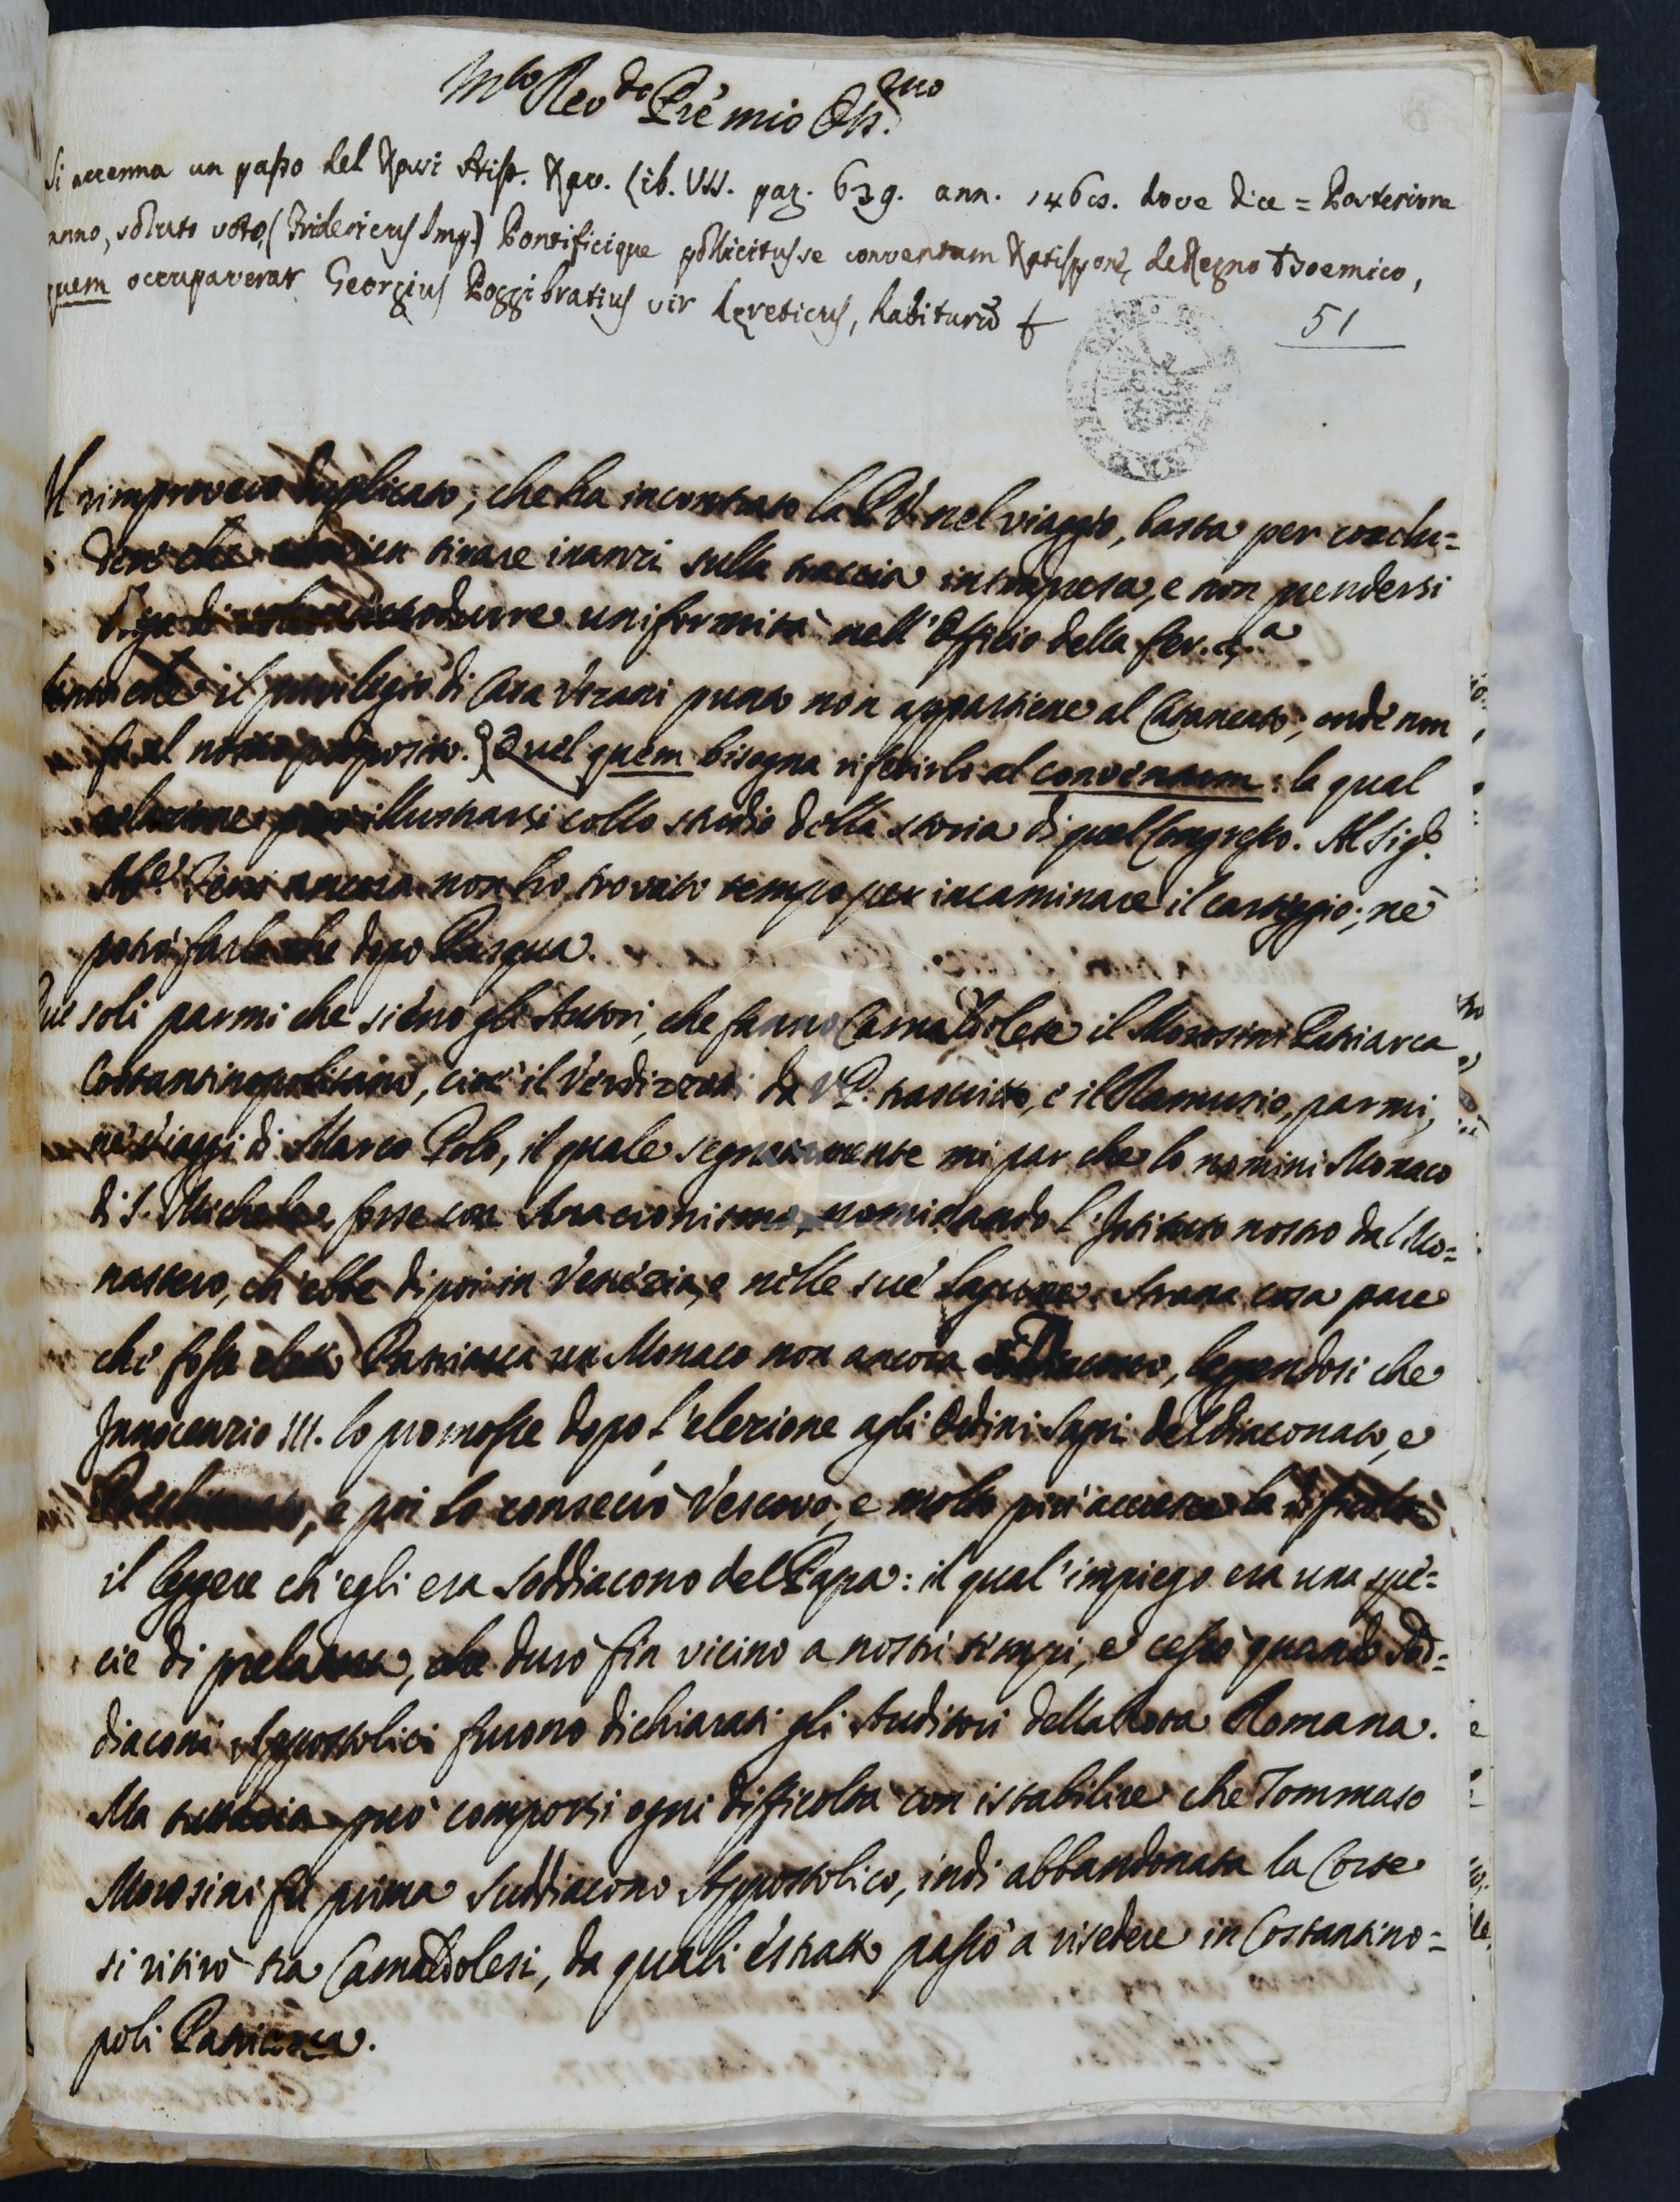 Mto Revdo Prē mio Oss.mo
Si accenna un passo del Rossi Hist. Rav. Lib. VII. pag. 639. ann. 1468. dove dice = Posteriore
anno, soluto voto, (Fridericus Imp.) Pontificique pollicitus se conventum Ratisponę de Regno Boemico,
quem occupaverat Georgius Poggibratius vir hęreticus, habiturū
51
Il rimprovero duplicato, che ha incontrato la P.V. nel viaggio, basta per conclu=
dere che convien tirare inanzi sulla traccia intrapresa, e non prendersi
briga di introdurre uniformità nell'Officio della fer. 4.a
il privilegio di Cara Vizani punto non appartiene al Cataneato; onde non
fa al nostro proposito. Quel quem bisogna riferirlo al conventum: la qual
relazione può illustrarsi collo studio della storia di quel Congresso. Al Sigr.
Abe. ancora non ho trovato tempo per incaminare il carteggio; nè
potrò farlo che dopo Pasqua.
Due soli parmi che sieno gli Autori, che fanno Camaldolese il Morosini Patriarca
Costantinopolitano, cioè il Verdizzotti da V.P. trascritto, e il Ramusio, parmi,
ne' viaggi di Marco Polo, il quale segnatamente mi par che lo nomini Monaco
di S. Michele, forse con Anacronismo, nominando l'Istituto nostro dal Mo=
nastero, ch'ebbe dipoi in Venezia, e nelle sue lagune. Strana cosa pare
che fosse eletto Patriarca un Monaco non ancora Diacono, leggendosi che
Innocenzio III. lo promosse dopo l'elezione agli Ordini Sagri del diaconato, e
Presbiterato, e poi lo consecrò Vescovo; e molto più accresce la difficoltà
il leggere ch'egli era Soddiacono del Papa: il qual'impiego era una spe=
cie di prelatura, che durò fin vicino a nostri tempi, e cessò quando Sod=
diaconi Appostolici furono dichiarati gli Auditori della Rota Romana.
Ma tuttavia può comporsi ogni difficoltà con istabilire che Tommaso
Morosini fu prima Suddiacono Appostolico, indi abbandonata la Corte
si ritirò tra Camaldolesi, da quali estratto passò a risedere in Costantino=
poli Patriarca.